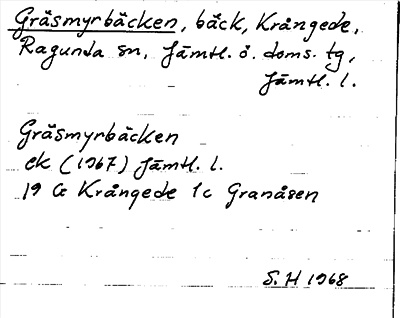 Gräsmyrbäcken, bäck, Krångede,
Ragunda sn, Jämtl. ö. doms. tg,
Jämtl. l.
Gräsmyrbäcken
ek (1967) Jämtl. l.
19 G Krångede 1c Granåsen
S. H 1968